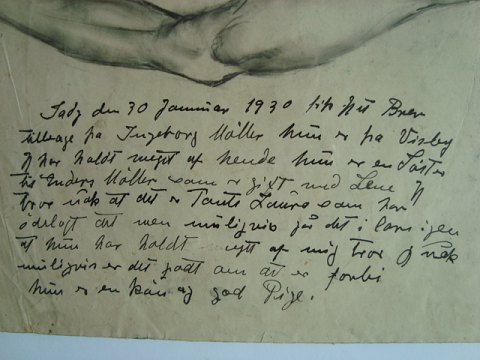 den 30 Januar 1930 fik mit Brev
tilbage fra Ingeborg Møller hun er fra Visby
og har holdt meget af hende hun er en Søster
til Anders Møller som er gift med Lene Jeg
tror nok at det er Tante Laura som har
ødelagt det men muligvis går det i lave igen
at hun har holdt meget af mig tror jeg nok
muligvis er det godt om det er forbi
hun er en køn og god Pige.